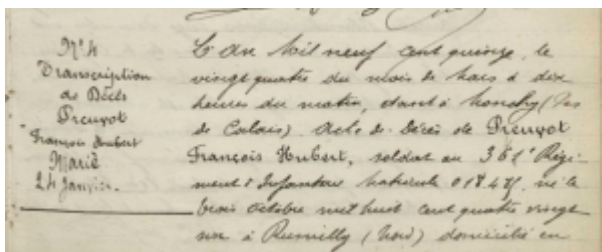 N° 4
Transcription
de Décès
Preuvot
François Hubert
Marié
24 Janvier.
L'an Mil neuf cent quinze, le
vingt quatre du mois de Mars à dix
heures du matin, étant à (Pas
de Calais). Acte de Décès de Preuvot
François Hubert, soldat au 361e Régi
ment d'Infanterie Matricule né le
trois Octobre mil huit cent quatre vingt
à Rumilly (Nord) domicilié en